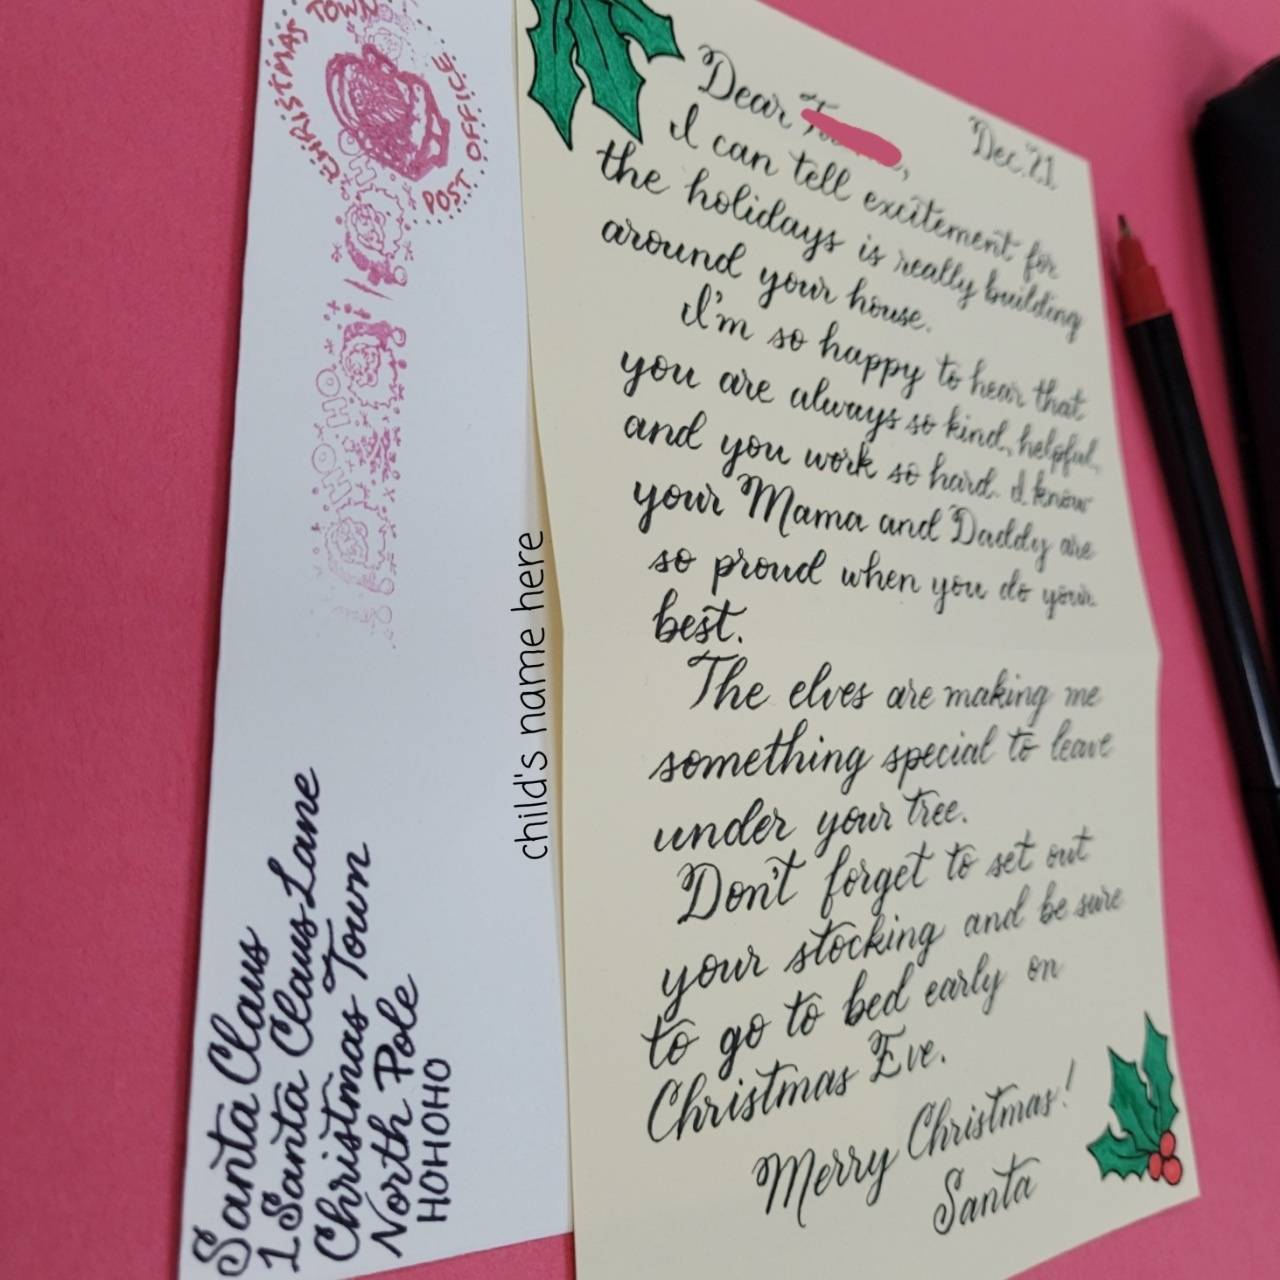 CHRISTMAS TOWN
POST OFFICE
HO HO HO
HO HO HO
Santa Claus
1 Santa Claus Lane
Christmas Town
North Pole
HOHOHO
child's name here
Dec. '21
Dear
I can tell excitement for
the holidays is really building
around your house.
I'm so happy to hear that
you are always so kind, helpful,
and you work so hard. I know
your Mama and Daddy are
so proud when you do your
best.
The elves are making me
something special to leave
under your tree.
Don't forget to set out
your stocking and be sure
to go to bed early on
Christmas Eve.
Merry Christmas!
Santa